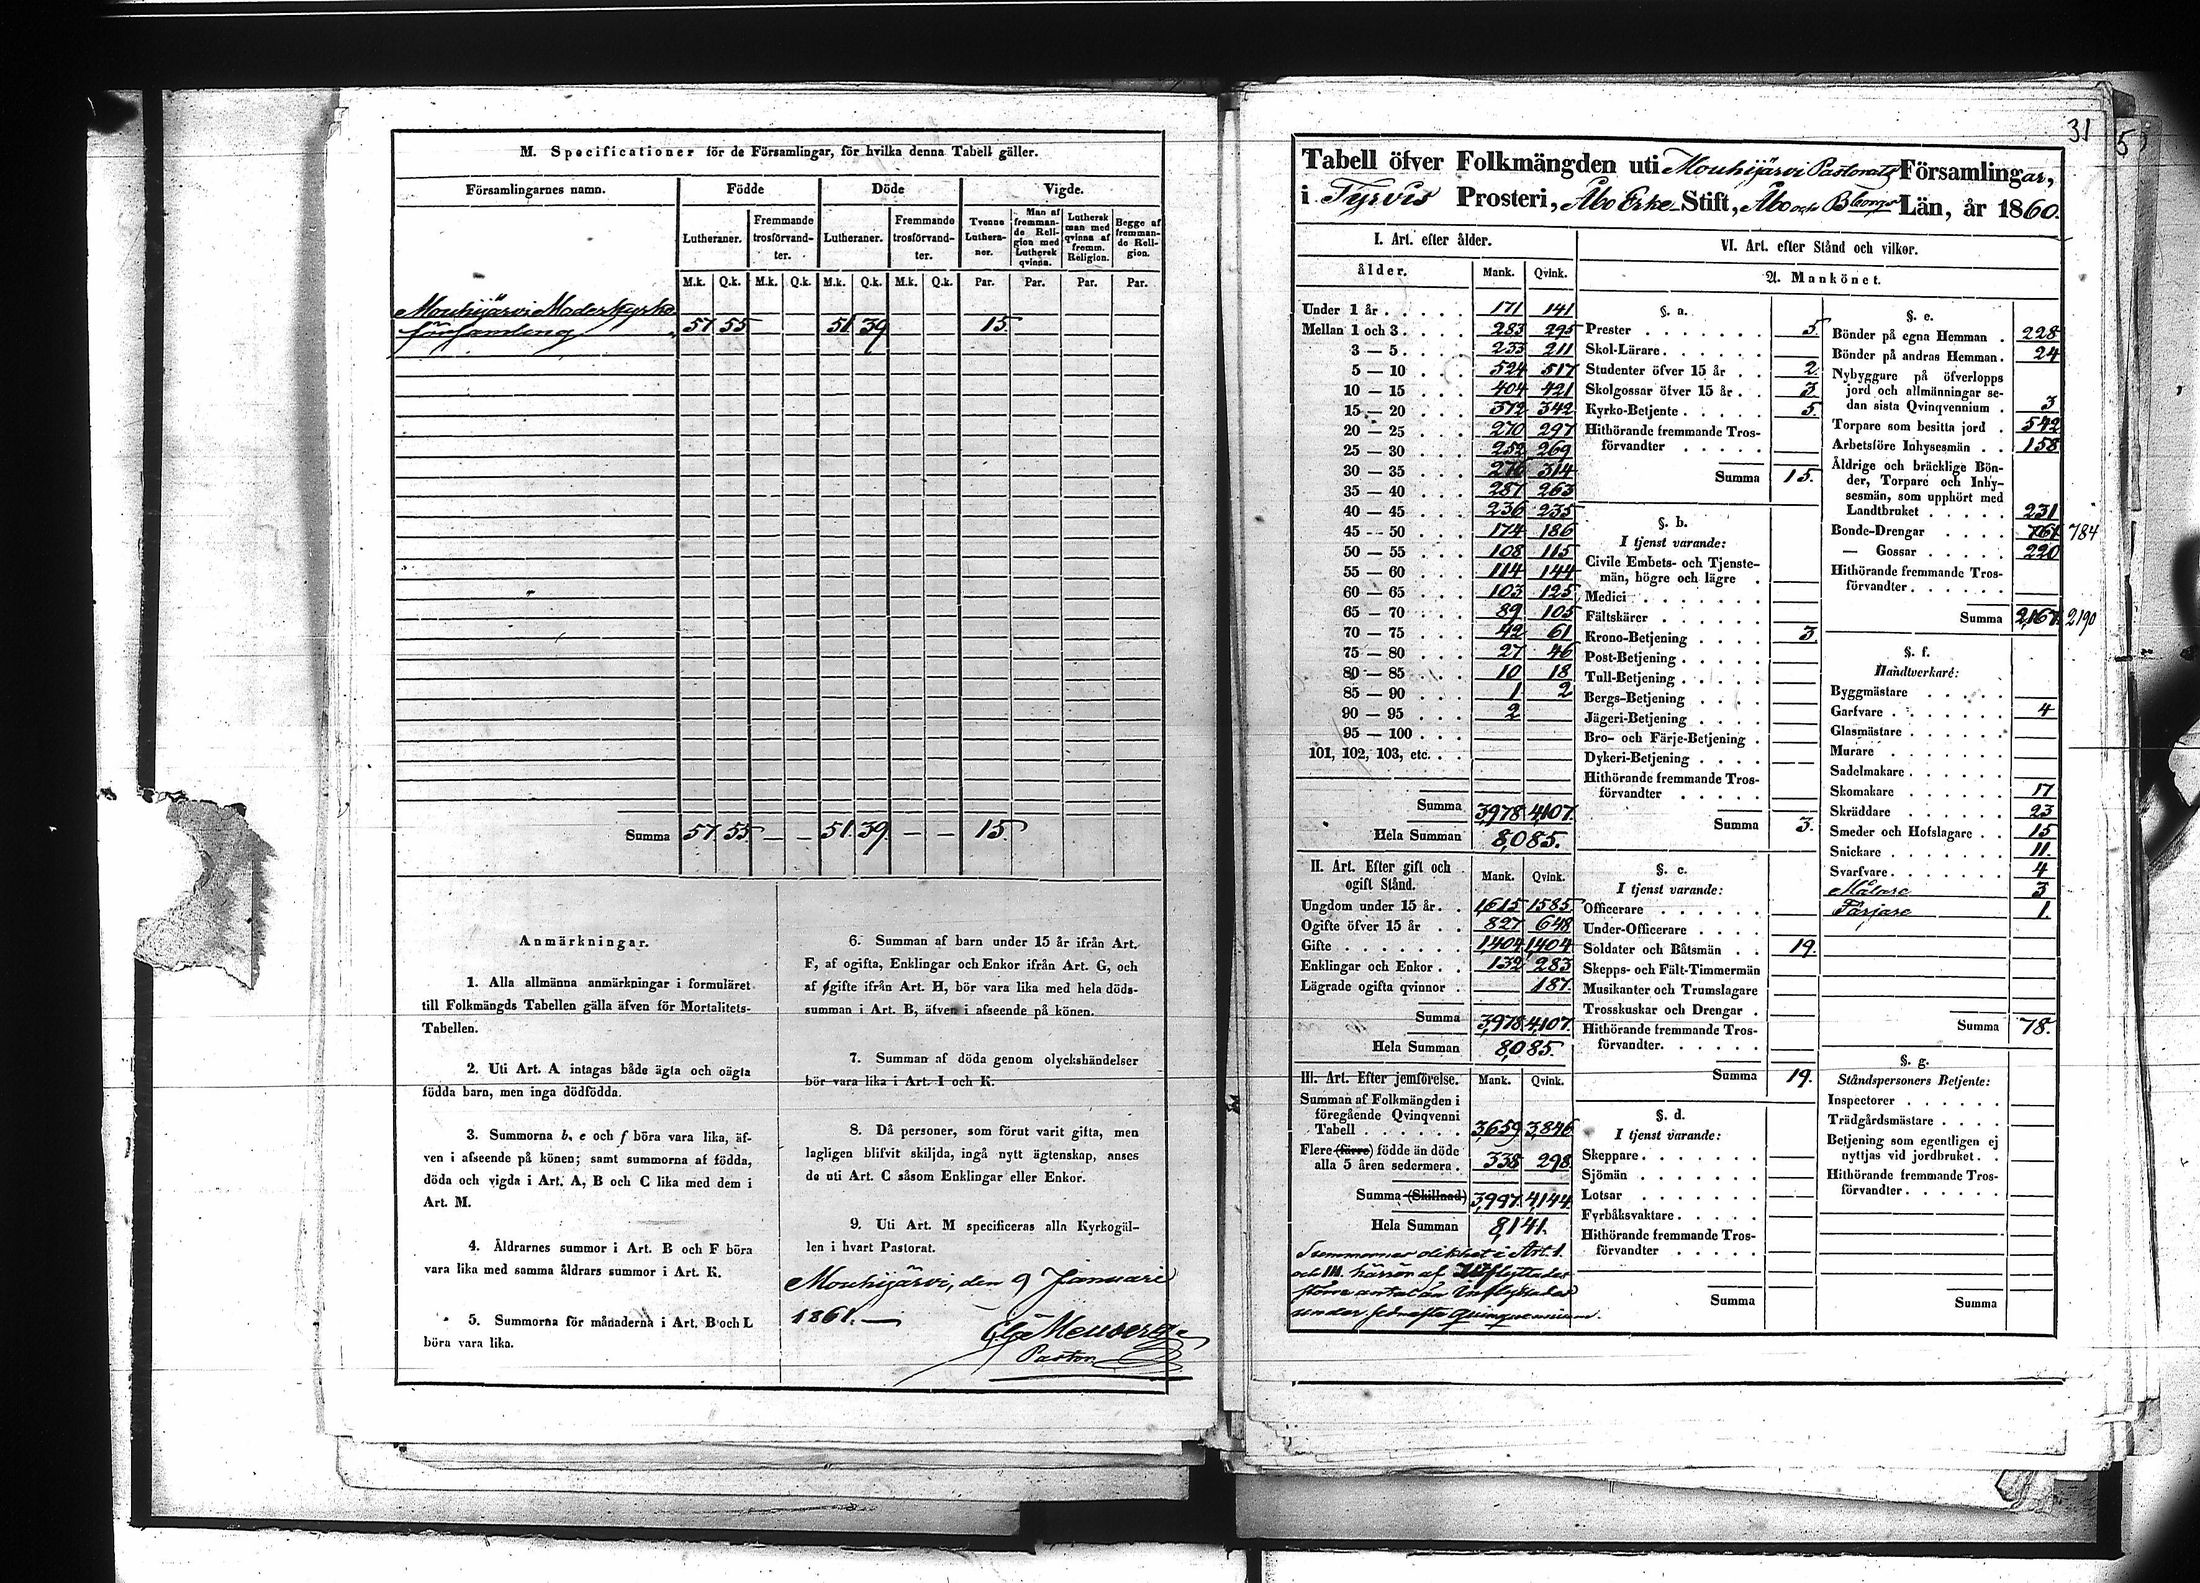 M. Specificationer för de Församlingar, för hvilka denna Tabell gäller.
Församlingarnes namn. Födde Döde Vigde.
Lutheraner. Fremmande trosförvandter. Lutheraner. Fremmande trosförvandter. Tvenne Lutheraner. Man af fremmande Religion med Luthersk qvinna. Luthersk man med qvinna af fremm. Religion. Begge af fremmande Religion.
M.k. Q.k. M.k. Q.k. M.k. Q.k. M.k. Q.k. Par. Par. Par. Par.
Mouhijärvi Moderkyrko
församling 57 55 51 39 15.
Summa 57. 55. — — 51. 39. — — 15.
Anmärkningar.
1. Alla allmänna anmärkningar i formuläret
till Folkmängds Tabellen gälla äfven för Mortalitets-
Tabellen.
2. Uti Art. A intagas både ägta och oägta
födda barn, men inga dödfödda.
3. Summorna b, e och f böra vara lika, äf-
ven i afseende på könen; samt summorna af födda,
döda och vigda i Art. A, B och C lika med dem i
Art. M.
4. Åldrarnes summor i Art. B och F böra
vara lika med samma åldrars summor i Art. K.
5. Summorna för månaderna i Art. B och L
böra vara lika.
6. Summan af barn under 15 år ifrån Art.
F, af ogifta, Enklingar och Enkor ifrån Art. G, och
af gifte ifrån Art. H, bör vara lika med hela döds-
summan i Art. B, äfven i afseende på könen.
7. Summan af döda genom olyckshändelser
bör vara lika i Art. I och K.
8. Då personer, som förut varit gifta, men
lagligen blifvit skiljda, ingå nytt ägtenskap, anses
de uti Art. C såsom Enklingar eller Enkor.
9. Uti Art. M specificeras alla Kyrkogäl-
len i hvart Pastorat.
Mouhijärvi, den 9 Januari
1861. —
Pastor
31
5
Tabell öfver Folkmängden uti Mouhijärvi Pastorats Församlingar,
i Tyrvis Prosteri, Åbo Erke Stift, Åbo och B:borgs Län, år 1860.
I. Art. efter ålder.
ålder. Mank. Qvink.
Under 1 år 171 141
Mellan 1 och 3 283 295
3 — 5 233 211
5 — 10 524 517
10 — 15 404 421
15 — 20 372 342
20 — 25 270 297
25 — 30 252 269
30 — 35 276 314
35 — 40 287 263
40 — 45 236 235
45 — 50 174 186
50 — 55 108 115
55 — 60 114 144
60 — 65 103 125
65 — 70 89 105
70 — 75 42 61
75 — 80 27 46
80 — 85 10 18
85 — 90 1 2
90 — 95 2
95 — 100
101, 102, 103, etc.
Summa 3,978 4,107.
Hela Summan 8,085.
II. Art. Efter gift och ogift Stånd. Mank. Qvink.
Ungdom under 15 år 1,615 1585
Ogifte öfver 15 år 827 648
Gifte 1,404 1,404
Enklingar och Enkor 132 283
Lägrade ogifta qvinnor 187.
Summa 3,978 4,107.
Hela Summan 8,085.
III. Art. Efter jemförelse. Mank. Qvink.
Summan af Folkmängden i
föregående Qvinqvenni
Tabell 3,659 3,846
Flere (färre) födde än döde
alla 5 åren sedermera 338 298
Summa (Skillnad) 3,997. 4,144.
Hela Summan 8,141.
Summornas olikhet i Art. 1.
och III härrör af Utflyttades
större antal än Inflyttades
under sednaste Quinquennium.
VI. Art. efter Stånd och vilkor.
A. Mankönet.
§. a.
Prester 5.
Skol-Lärare
Studenter öfver 15 år 2.
Skolgossar öfver 15 år 3.
Kyrko-Betjente 5.
Hithörande fremmande Tros-
förvandter
Summa 15.
§. b.
I tjenst varande:
Civile Embets- och Tjenste-
män, högre och lägre
Medici
Fältskärer
Krono-Betjening 3.
Post-Betjening
Tull-Betjening
Bergs-Betjening
Jägeri-Betjening
Bro- och Färje-Betjening
Dykeri-Betjening
Hithörande fremmande Tros-
förvandter
Summa 3.
§. c.
I tjenst varande:
Officerare
Under-Officerare
Soldater och Båtsmän 19.
Skepps- och Fält-Timmermän
Musikanter och Trumslagare
Trosskuskar och Drengar
Hithörande fremmande Tros-
förvandter.
Summa 19.
§. d.
I tjenst varande:
Skeppare
Sjömän
Lotsar
Fyrbåksvaktare
Hithörande fremmande Tros-
förvandter
Summa
§. e.
Bönder på egna Hemman 228
Bönder på andras Hemman 24
Nybyggare på öfverlopps
jord och allmänningar se-
dan sista Qvinqvennium 3
Torpare som besitta jord 542
Arbetsföre Inhysesmän 158
Åldrige och bräcklige Bön-
der, Torpare och Inhy-
sesmän, som upphört med
Landtbruket 231
Bonde-Drengar 761 784
— Gossar 220
Hithörande fremmande Tros-
förvandter
Summa 2,167. 2,190
§. f.
Handtverkare:
Byggmästare
Garfvare 4
Glasmästare
Murare
Sadelmakare
Skomakare 17
Skräddare 23
Smeder och Hofslagare 15
Snickare 11.
Svarfvare 4
Målare 3
Färjare 1.
Summa 78.
§. g.
Ståndspersoners Betjente:
Inspectorer
Trädgårdsmästare
Betjening som egentligen ej
nyttjas vid jordbruket
Hithörande fremmande Tros-
förvandter
Summa